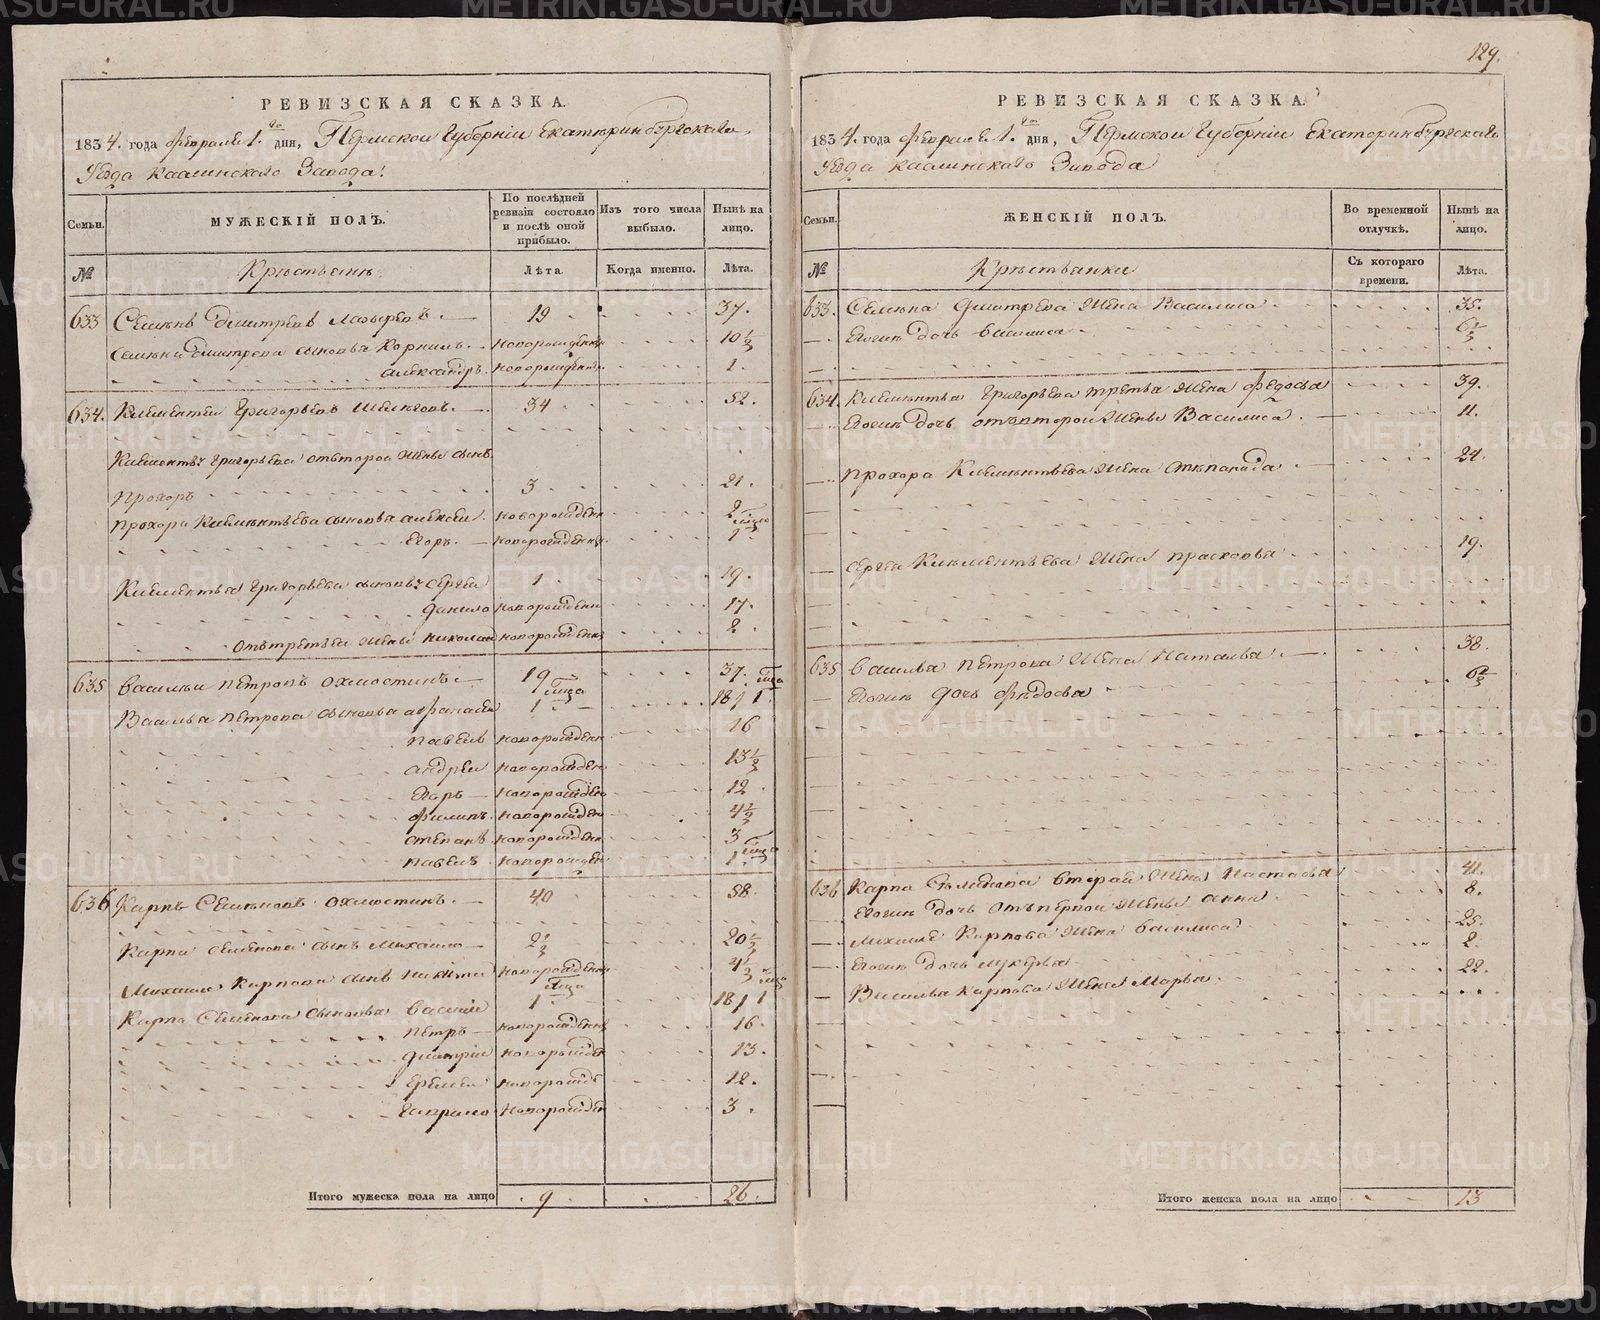 129.
РЕВИЗСКАЯ СКАЗКА.
1834. года февраля 1. го дня, Пермской Губернии Екатеринбургскаго
Уезда Каслинскаго Завода.
Семьи.
МУЖЕСКІЙ ПОЛЪ.
По послѣдней ревизіи состояло и послѣ оной прибыло.
Изъ того числа выбыло.
Нынѣ на лицо.
№
Крестьяне.
Лѣта.
Когда именно.
Лѣта.
633 Семенъ Дмитревъ 19 37.
Семена Дмитрева сыновья Корнилъ. новорожден 10 1/2
Александръ. новорожден 1.
634. Клементей Григорьевъ 34 52.
Клементья Григорьева отвторой жены сынъ
Прохоръ 3 21.
Прохора Клементьева сыновья Алексей. новорожден 2
Егоръ. новорожден 1
Клементья Григорьева сыновья Сергей 1 19.
Данило новорожден 17.
отътретьей жены Николай новорожден 2.
635 Василей Петровъ Охлюстинъ 19 37.
Василья Петрова сыновья Афанасей 1 18/1
Павелъ новорожден 16
Андрей новорожден 13 1/2
Егоръ новорожден 12
Филипъ. новорожден 4 1/2
Степанъ новорожден 3
Павелъ новорожден 1
636 Карпъ Семеновъ Охлюстинъ. 40 58.
Карпа Семенова сынъ Михайло 2 1/2 20 1/2
Михайла Карпова сынъ Никита новорожден 4 1/2
Карпа Семенова сыновья Василей 1 18/1
Петръ новорожден 16.
Дмитрий новорожден 13.
Еремей новорожд 12.
Гаврило новорожден 3.
Итого мужеска пола на лицо 9 26.
РЕВИЗСКАЯ СКАЗКА.
1834. года февраля 1. го дня, Пермской Губернии Екатеринбургскаго
Уезда Каслинскаго Завода
Семьи.
ЖЕНСКІЙ ПОЛЪ.
Во временной отлучкѣ.
Нынѣ на лицо.
№
Крестьянки
Съ котораго времени.
Лѣта.
633. Семена Дмитрева жена Василиса 35.
Егоже дочь Василиса 6 1/2
634. Клементья Григорьева третья жена Федосья 39.
Егоже дочь отъвторой жены Василиса 11.
Прохора Клементьева жена Степанида 24.
Сергея Клементьева жена Прасковья 19.
635 Василья Петрова жена Наталья 38.
Егоже дочь Федосья 6 1/2
636 Карпа Семенова вторая жена Настасья 41.
Егоже дочь отъпервой жены Анна 8.
Михайла Карпова жена Василиса 25.
Егоже дочь Лукерья 2.
Василья Карпова жена Марья 22.
Итого женска пола на лицо 13
METRIKI.GASO-URAL.RU